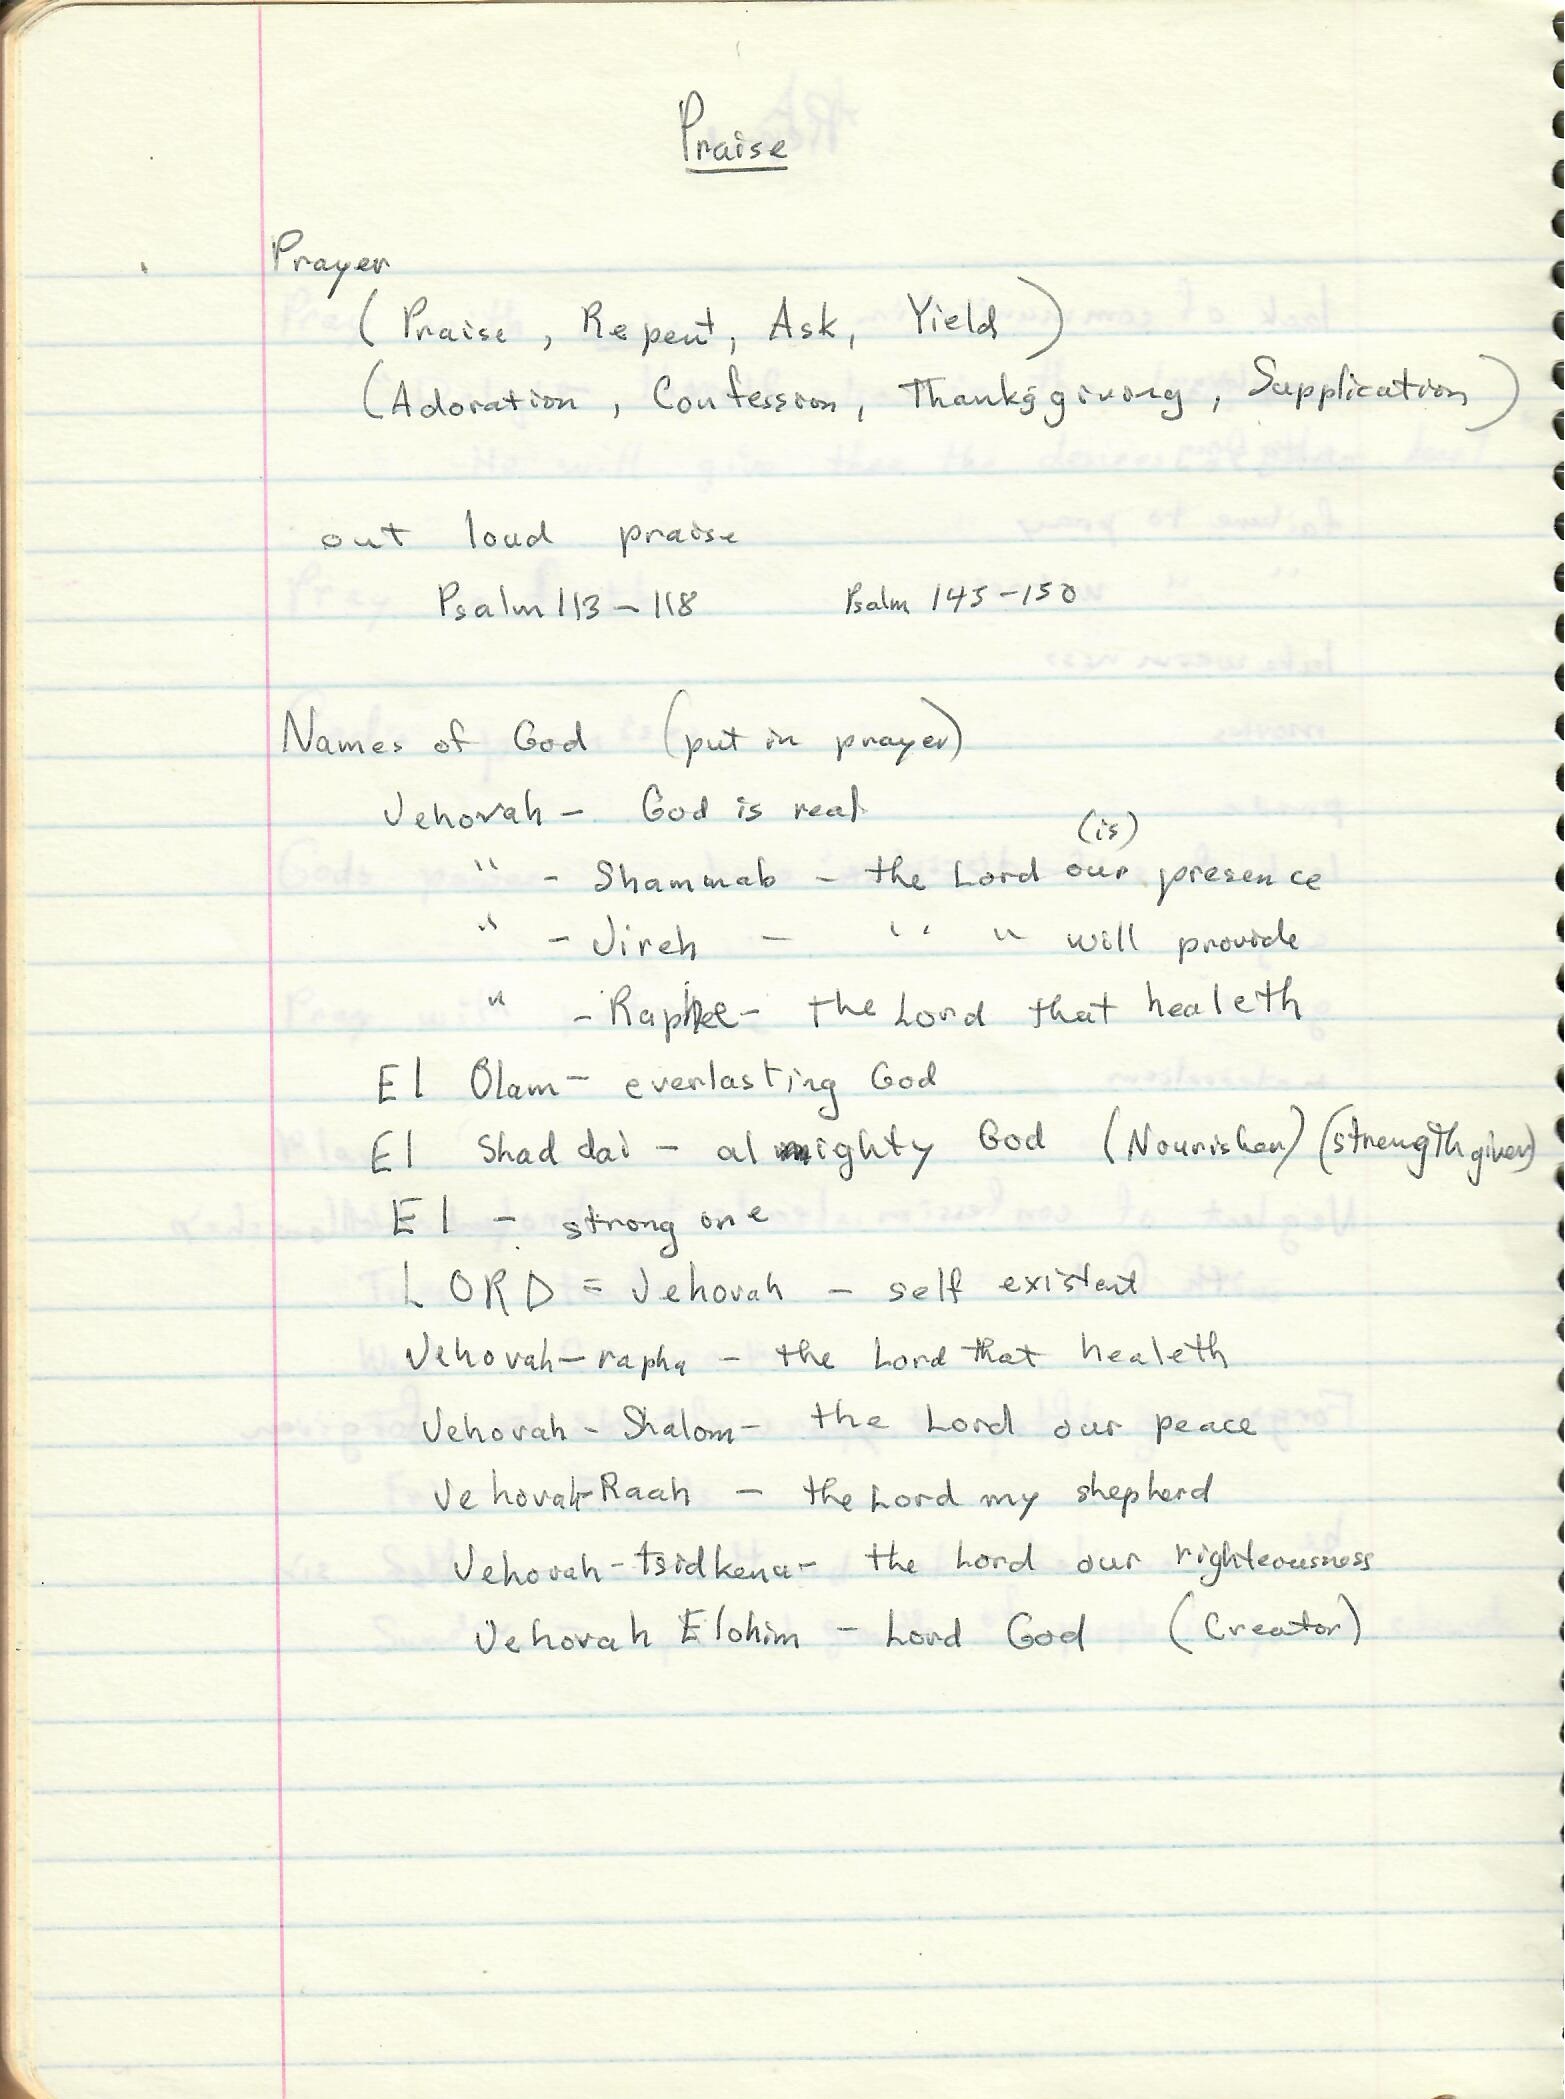 Praise
Prayer
(Praise, Repent, Ask, Yield)
(Adoration, Confession, Thanksgiving, Supplication)
out loud praise
Psalm 113-118 Psalm 145-150
Names of God (put in prayer)
Jehovah - God is real
(is)
" - Shammab - the Lord our presence
" - Jireh - " " will provide
" - Raphe - the Lord that healeth
El Olam - everlasting God
El Shaddai - almighty God (Nourisher) (strength giver)
El - strong one
LORD = Jehovah - self existent
Jehovah-rapha - the Lord that healeth
Jehovah-Shalom - the Lord our peace
Jehovah-Raah - the Lord my shepherd
Jehovah-tsidkena - the Lord our righteousness
Jehovah Elohim - Lord God (Creator)